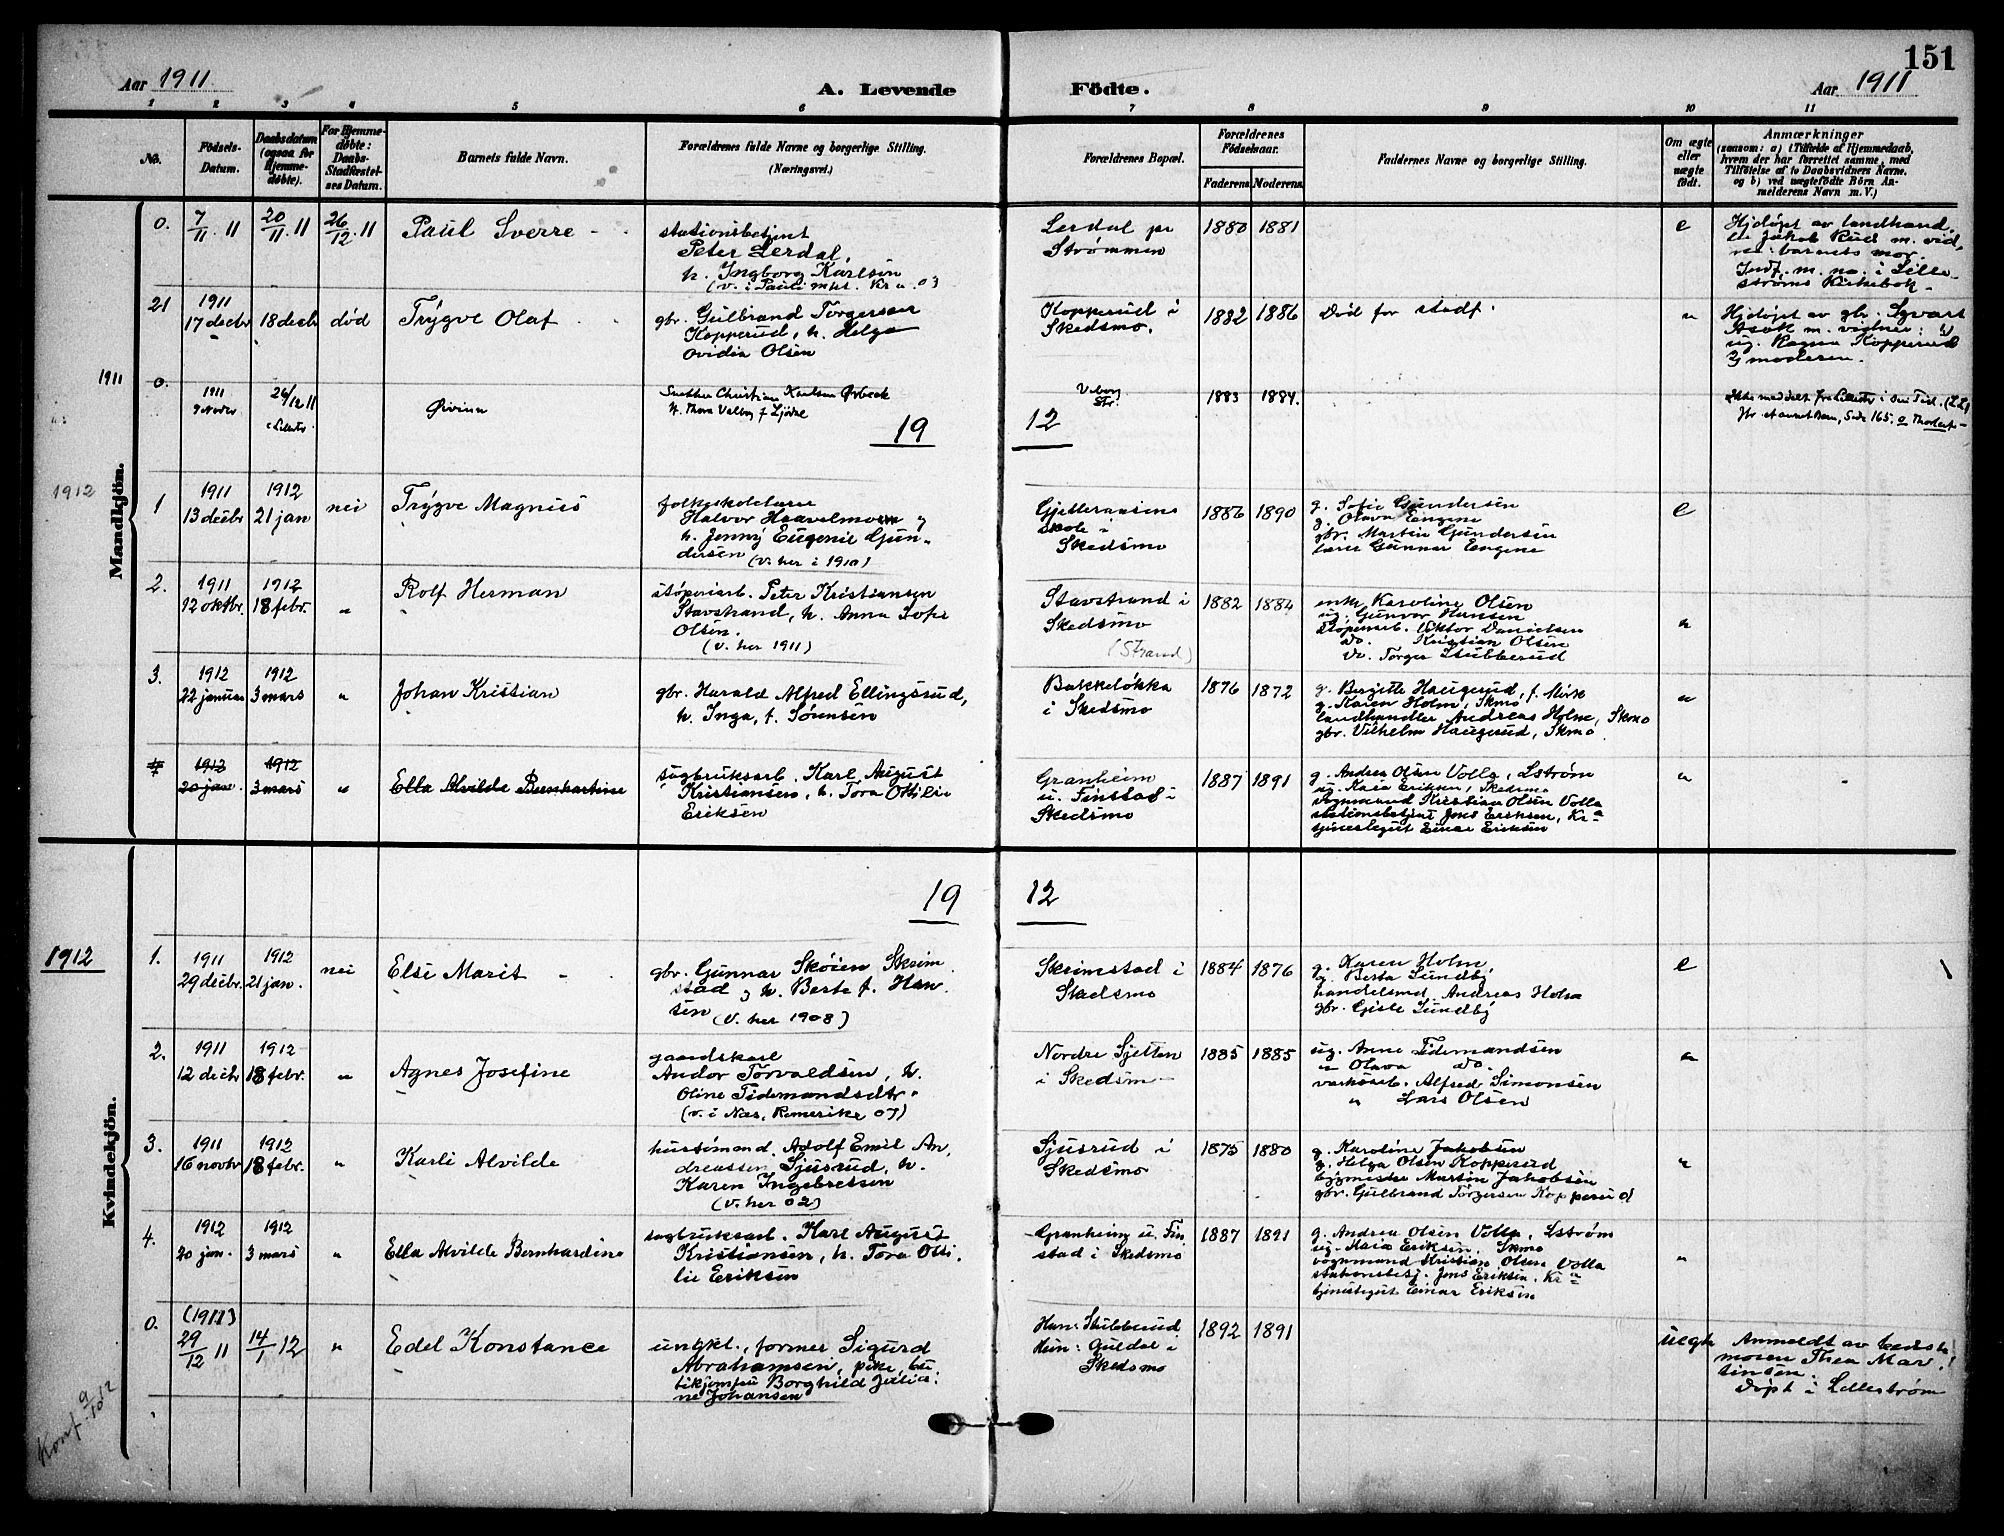 151
Aar 1911
A. Levende Födte.
Aar 1911
1 2 3 4 5 6 7 8 9 10 11
No.
Födsels-Datum.
Daabsdatum (ogsaa for Hjemmedøbte).
For Hjemmedøbte: Daabs-Stadfæstelses Datum.
Barnets fulde Navn.
Forældrenes fulde Navne og borgerlige Stilling. (Næringsvei.)
Forældrenes Bopæl.
Forældrenes Födselsaar.
Faderens. Moderens.
Faddernes Navne og borgerlige Stilling.
Om ægte eller uægte födt.
Anmærkninger
(saasom: a) i Tilfælde af Hjemmedaab, hvem der har forrettet samme, med Tilföielse af to Daabsvidners Navne. og b) ved uægtefödte Börn Anmelderens Navn m. V.)
Mandkjön.
0. 7/11 11 20/11 11 26/12 11 Paul Sverre
stationsbetjent
Peter Lerdal,
h. Ingborg Karlsen
Lerdal pr
Strømmen
1880 1881
e
Hjdøpt av landhand.
ler Jakob Rud m. vid.
ne: barnets mor.
Indf. m. no. i Lille-
strøms Kirkebok.
21 1911
17 decbr 18 decb død Trygve Olaf
gbr. Gulbrand Torgersen
Kopperud, h. Helga
Ovidia Olsen
Kopperud i
Skedsmo.
1882 1886 Død før stadf.
"
Hjdøpt av gbr. Sgvart
Asak m. vidner: 1)
ug. Ragna Kopperud
2) moderen.
1911
0. 1911 26/12 11
Øivinn
Snekker Christian Karlsen Ørbeck
h. Thora Valborg f Ljødal
1883 1884.
19 12
1912
1 1911 1912
13 decbr 21 jan nei Trygve Magnus
folkeskolelærer
Halvor Haavelmoen og
h. Jenny Eugenie Gun-
dersen (v. her i 1910)
skole i
Skedsmo
1886 1890
g. Sofie Gundersen
g. Olava Engene
gbr. Martin Gundersen
lærer Gunnar Engene
e
2. 1911 1912
12 oktbr. 18 febr. " Rolf Herman
støperiarb. Peter Kristiansen
Stavstrand, h. Anna Sofie
Olsen.
(v. her 1911)
Stavstrand i
Skedsmo
(Strand)
1882 1884
enke Karoline Olsen
ug. Gunvor Hansen
støperiarb. Viktor Danielsen
do. Kristian Olsen
do. Torger Stubberud
"
3. 1912 1912
22 januar 3 mars " Johan Kristian
gbr. Harald Alfred Ellingsrud,
h. Inga, f. Sørensen
Bakkeløkka
i Skedsmo
1876 1872
g. Bergitte Haugerud, f. Mørk
g. Karen Holm, Skmo
landhandler Andreas Holm, Skmo
gbr. Vilhelm Haugerud, Skmo
"
4 1912 1912
20 jan. 3 mars " Ella Alvilde Bernhartine
sagbruksarb. Karl August
Kristiansen, h. Tora Ottilie
Eriksen
Granheim
u. Finstad i
Skedsmo
1887 1891
g. Andrea Olsen Volla, Lstrøm
ug. Kaia Eriksen, Skedsmo
vognmand Kristian Olsen Volla
stationsbetjent Jens Eriksen, Kra
tjenestegut Einar Eriksen
"
Kvindekjön.
19 12
1912
1. 1911 1912
29 decbr. 21 jan. nei Elsi Marit
gbr. Gunnar Skøien Skrim
stad og h. Berte f. Han
sen (v. her 1908)
Skrimstad i
Skedsmo
1884 1876
g. Karen Holm
g. Berta Sundby
handelsmd. Andreas Holm
gbr. Gisle Sundby
e
2. 1911 1912
12 decbr 18 febr. " Agnes Josefine
gaardskarl
Andor Torvaldsen, h.
Oline Tidemandsdtr.
(v. i Nes, Romerike 07)
Nordre Sjetten
i Skedsmo
1885 1885
ug. Anne Tidemandsen
" Olava do.
verksarb. Alfred Simonsen
" Lars Olsen
"
3. 1911 1912
16 novbr 18 febr. " Karli Alvilde
husmand. Adolf Emil An
dreassen Sjusrud, h.
Karen Ingebretsen
(v. her 02)
Sjusrud i
Skedsmo
1875 1880
g. Karoline Jakobsen
g. Helga Olsen Kopperud
Martin Jakobsen
gbr. Gulbrand Torgersen Kopperud
"
4. 1912 1912
20 jan. 3 mars " Ella Alvilde Bernhardine
sagbruksarb. Karl August
Kristiansen, h. Tora Otti
lie Eriksen
Granheim u. Fin
stad i Skedsmo
1887 1891
g. Andrea Olsen Volla, Lstrøm
ug. Kaia Eriksen, Skmo
vognmand Kristian Olsen Volla
stationsbetj. Jens Eriksen. Kra
tjenestegut Einar Eriksen
"
(1911)
0. 29/12 11 14/1 12 " Edel Konstance
ungkl., former Sigurd
Abrahamsen, pike, bu
tikjomfru Borghild Julia:
ne Johansen
Han: Stubberud.
Hun: Guldal i
Skedsmo
1892 1891
uegte
Anmeldt av
moren Thea Mar
tinsen.
Døpt i Lillestrøm
Konf. 9/10 12